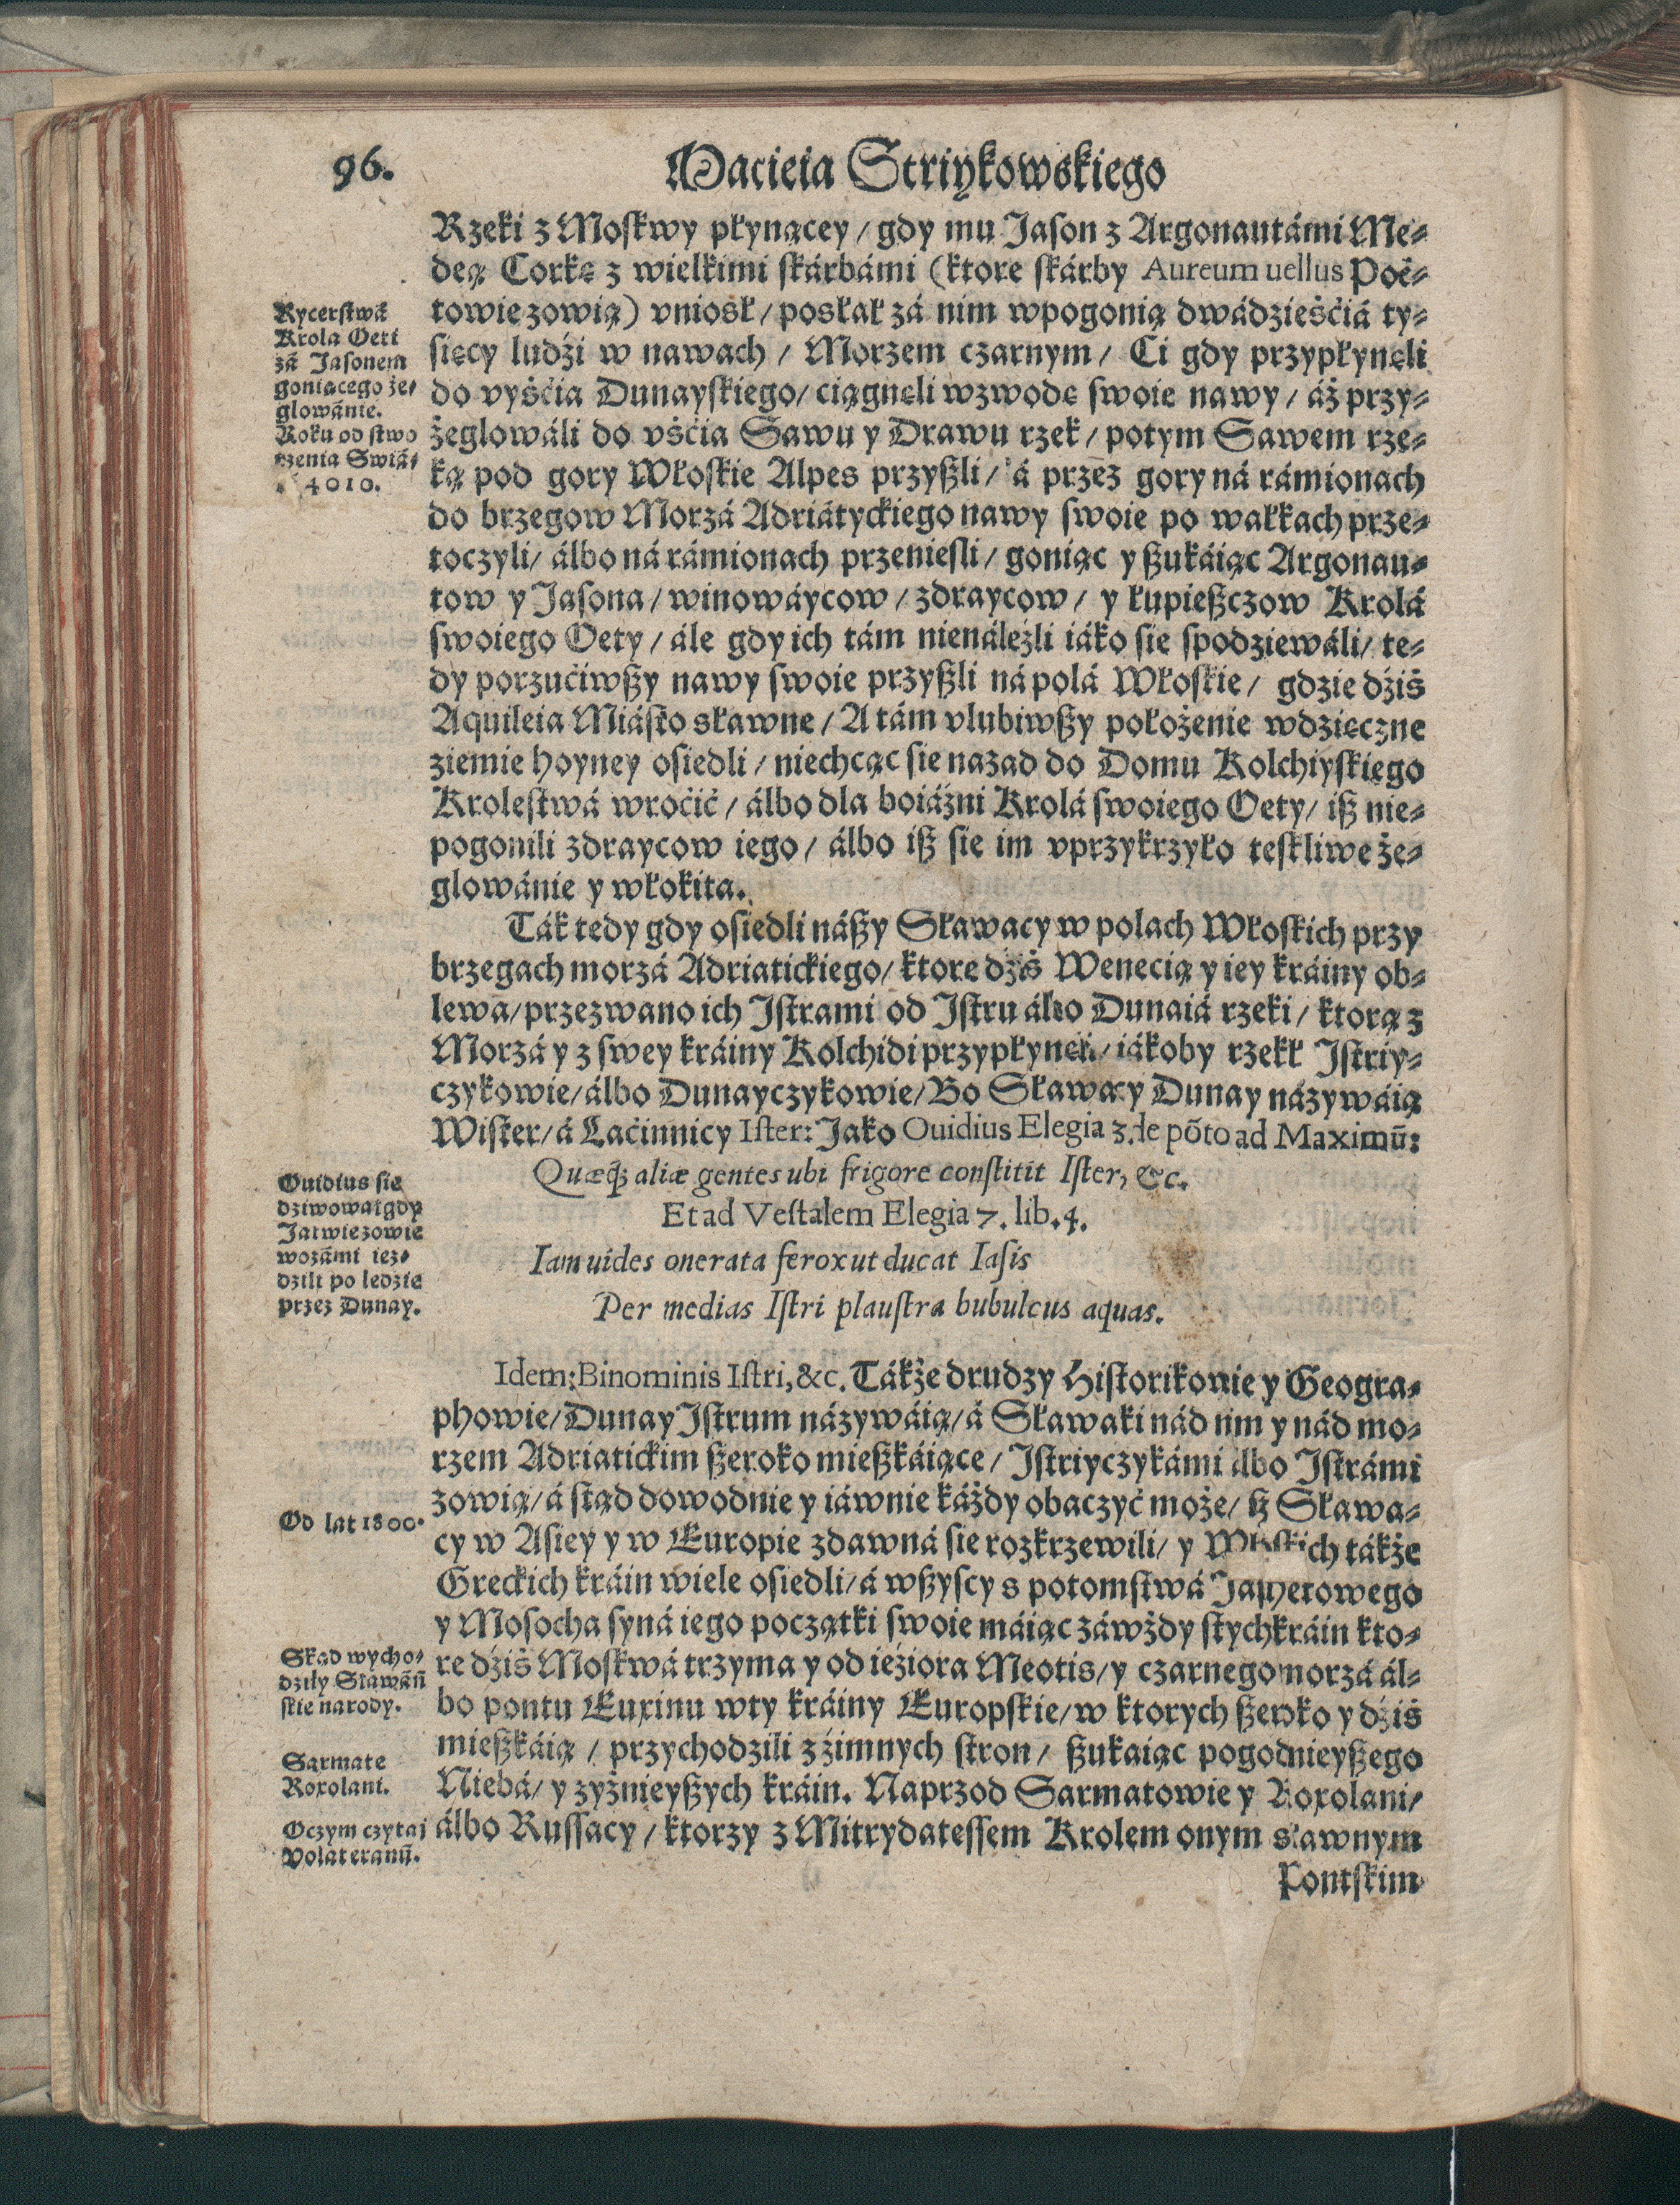 96.
Macieia Striykowskiego
Rzeki z Moskwy płynącey / gdy mu Jason z Argonautámi Me-
deą Corkę z wielkimi skárbámi (ktore skárby Aureum uellus Poë-
towie zowią) vniosł / posłał zá nim wpogonią dwádzieśćiá ty-
sięcy ludźi w nawach / Morzem czarnym / Ci gdy przypłynęli
do vyśćia Dunayskiego / ciągnęli wzwodę swoie nawy / áż przy-
żeglowáli do vśćia Sawu y Drawu rzek / potym Sawem rze-
ką pod gory Włoskie Alpes przyszli / á przez gory ná rámionach
do brzegow Morzá Adriátyckiego nawy swoie po wałkach prze-
toczyli / álbo ná rámionach przeniesli / goniąc y szukáiąc Argonau-
tow y Jasona / winowáycow / zdraycow / y łupieszczow Krolá
swoiego Oety / ále gdy ich tám nienáleźli iáko sie spodziewáli / te-
dy porzućiwszy nawy swoie przyszli ná polá Włoskie / gdzie dźiś
Aquileia Miásto sławne / A tám vlubiwszy położenie wdzięczne
ziemie hoyney osiedli / niechcąc sie nazad do Domu Kolchiyskiego
Krolestwá wroćić / álbo dla boiáźni Krolá swoiego Oety / isz nie-
pogonili zdraycow iego / álbo isz sie im vprzykrzyło teskliwe że-
glowánie y włokita.
Ták tedy gdy osiedli nászy Sławacy w polach Włoskich przy
brzegach morzá Adriatickiego / ktore dźiś Wenecią y iey kráiny ob-
lewa / przezwano ich Istrami od Istru álbo Dunaiá rzeki / ktorą z
Morzá y z swey kráiny Kolchidi przypłynęli / iákoby rzekł Istriy-
czykowie / álbo Dunayczykowie / Bo Sławacy Dunay názywáią
Wister / á Laćinnicy Ister: Jako Ouidius Elegia 3. de põto ad Maximũ:
Quæq; aliæ gentes ubi frigore constitit Ister, &c.
Et ad Vestalem Elegia 7. lib. 4.
Iam uides onerata ferox ut ducat Iasis
Per medias Istri plaustra bubulcus aquas.
Idem: Binominis Istri, &c. Tákże drudzy Historikowie y Geogra-
phowie / Dunay Istrum názywáią / á Sławaki nád nim y nád mo-
rzem Adriatickim szeroko mieszkáiące / Istriyczykámi álbo Istrámi
zowią / á stąd dowodnie y iáwnie káżdy obaczyć może / isz Sława-
cy w Asiey y w Europie zdawná sie rozkrzewili / y Włoskich tákże
Greckich kráin wiele osiedli / á wszyscy s potomstwá Japhetowego
y Mosocha syná iego początki swoie máiąc záwżdy stychkráin kto-
re dźiś Moskwá trzyma y od ieźiora Meotis / y czarnego morzá ál-
bo pontu Euxinu wty kráiny Europskie / w ktorych szeroko y dźiś
mieszkáią / przychodzili z źimnych stron / szukaiąc pogodnieyszego
Niebá / y zyżnieyszych kráin. Naprzod Sarmatowie y Roxolani /
álbo Russacy / ktorzy z Mitrydatessem Krolem onym sławnym
Pontskim
Rycerstwá
Krola Oeti
zá Jasonem
goniącego że-
glowánie.
Roku od stwo
rzenia Swiá-
4010.
Ouidius sie
dziwował gdy
Jatwiezowie
wozámi iez-
dzili po ledzie
przez Dunay.
Od lat 1800.
Skąd wycho-
dziły Sławáñ
skie narody.
Sarmate
Roxolani.
Oczym czytaj
Volateranũ.